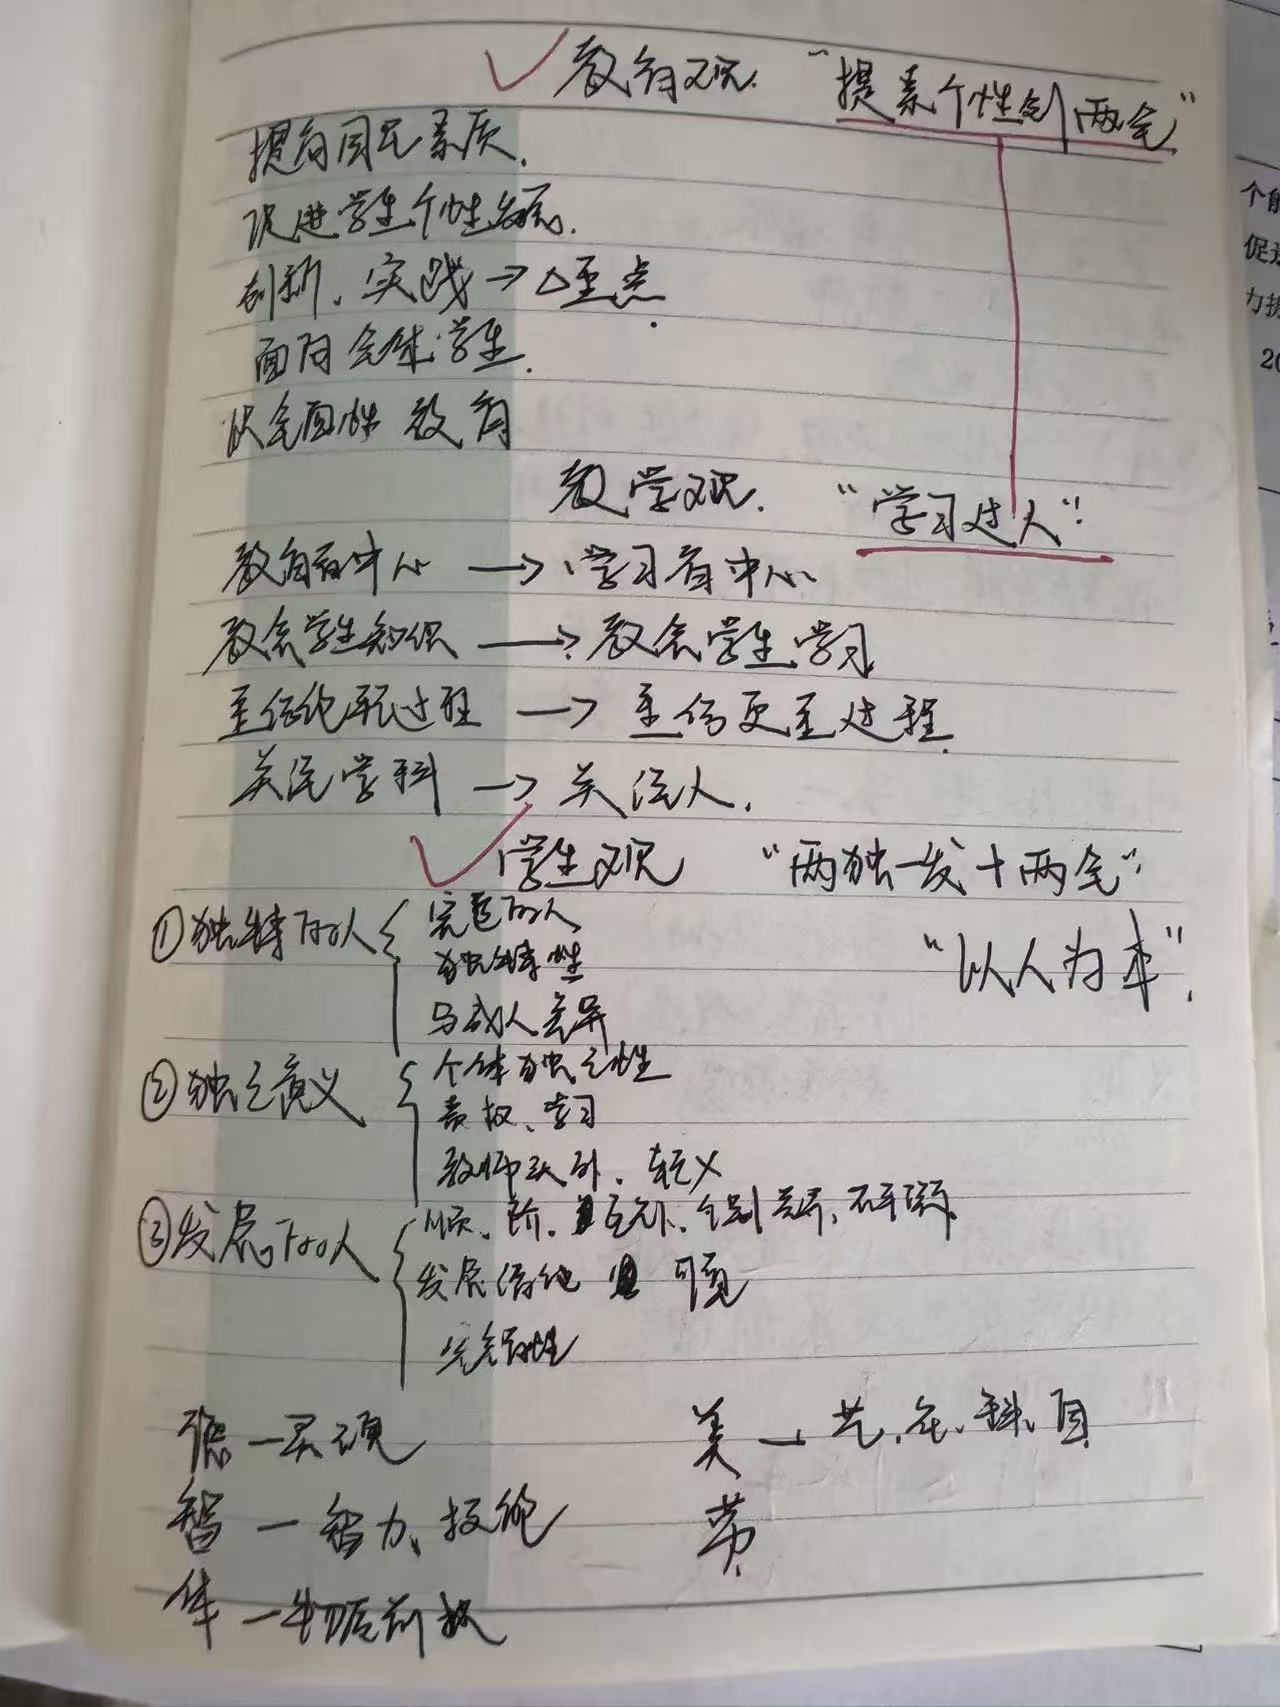 教育观. “提素个性创两全”
提高国民素质.
促进学生个性发展.
创新、实践→△重点.
面向全体学生.
教育
教学观. “学习过人”.
教育者中心 → 学习者中心
教会学生知识 → 教会学生学习
重结论轻过程 → 重结论更重过程.
关注学科 → 关注人.
学生观 “两独一发+两全”
“以人为本”.
①独特的人 完整的人
独特性
与成人差异
②独立意义 个体独立性
责权、学习
教师头外、
③发展的人 顺、阶、互补、个别差异、不平衡.
发展潜能
完整性
德 — 灵魂
智 — 智力、技能
体 — 物质前提
美 — 艺、
劳
个
促进
力
20